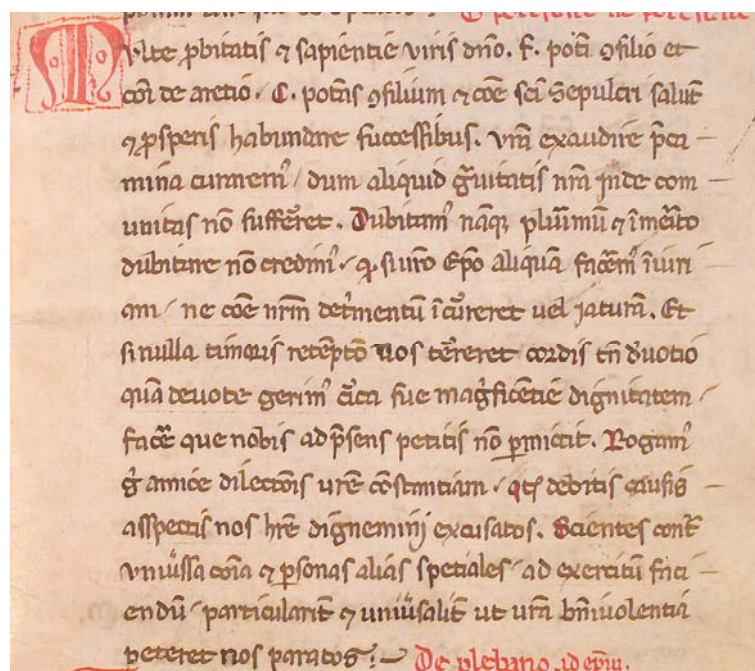 Multe ꝓbitatis ⁊ sapientie viris dn̄o. F. potī ꝯsilio et
cōi de aretio. C. potās ꝯsilium ⁊ cōe scī Sepulcri salut̄
⁊ ꝓsperis habundare successibus. vr̄a exaudire p̄ca
mina curarem᾽ / dum aliquid ḡuitatis nr̄a inde com
unitas nō suffer̄et. Dubitam᾽ nāqꝫ plurimū ⁊ īmeīto
dubitare nō credim᾽. si vr̄o Ep̄o aliquā facēm᾽ īiuri
am / ne cōe nr̄m det᾽mentū īcur̄eret uel jaturā. Et
si nulla timoris nos ter̄eret cordis tn̄ deuotio
quā deuote gerim᾽ cīca sue mag̓ficentie dignitatem /
facē que nobis ad p̄sens petitis nō ꝑmictit. Rogam᾽
g̓ amice dilectōis vrē cōstantiam / debitis causis
asspectis nos hr̄e dignemini excusatos. Scientes cont̄
vniūssa cōia ⁊ ꝑsonas alias spetiales / ad exercitū faci
endū / particularit̄ ⁊ uniūsalit̄ ut ur̄a bn̄iuolentia
peteret nos paratos. De plebano ad ep̄m.